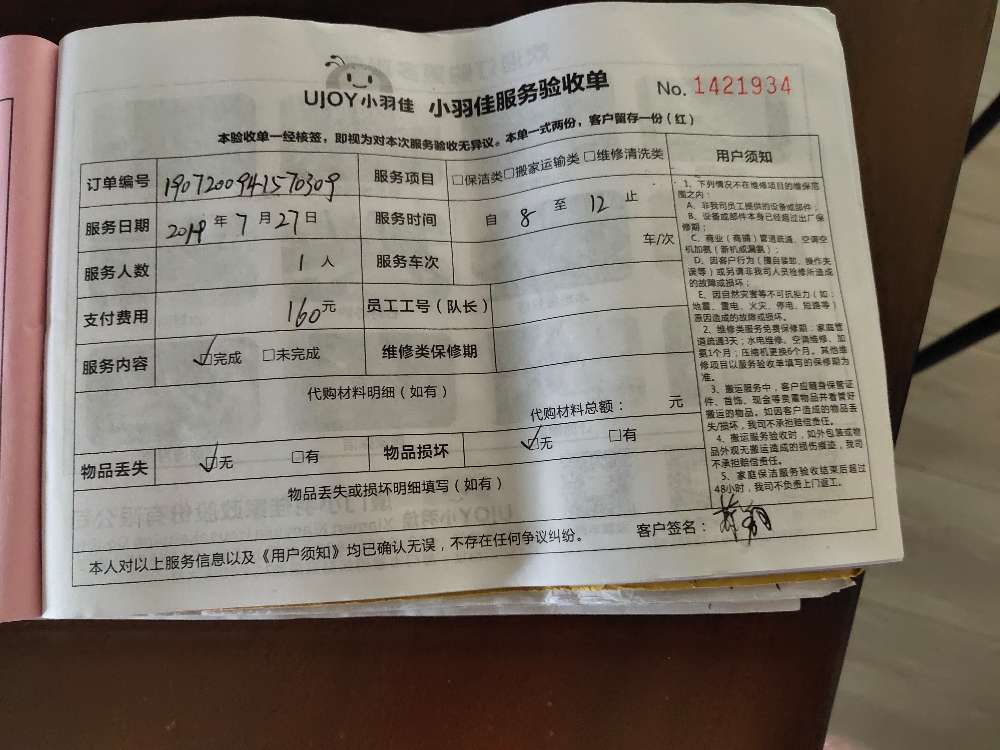 UJOY小羽佳 小羽佳服务验收单 No. 1421934
本验收单一经核签，即视为对本次服务验收无异议。本单一式两份，客户留存一份（红）
订单编号 1907200941570309 服务项目 □保洁类□搬家运输类 □维修清洗类
服务日期 2019年7月27日 服务时间 自 8 至 12 止
服务人数 1人 服务车次 车/次
支付费用 160元 员工工号（队长）
服务内容 ☑完成 □未完成 维修类保修期
代购材料明细（如有）
代购材料总额： 元
物品丢失 ☑无 □有 物品损坏 ☑无 □有
物品丢失或损坏明细填写（如有）
本人对以上服务信息以及《用户须知》均已确认无误，不存在任何争议纠纷。 客户签名：
用户须知
1、下列情况不在维修项目的维保范
围之内：
A、非我司员工提供的设备或部件；
B、设备或部件本身已经超过出厂保
修期；
C、商业（商铺）管道疏通、空调空
机加氨（新机或漏氨）；
D、因客户行为（擅自装卸、操作失
误等）或另请非我司人员检修所造成
的故障或损坏；
E、因自然灾害等不可抗拒力（如：
地震、雷电、火灾、停电、短路等）
原因造成的故障或损坏。
2、维修类服务免费保修期：家庭管
道疏通3天；水电维修、空调维修、加
氨1个月；压缩机更换6个月。其他维
修项目以服务验收单填写的保修期为
准。
3、搬运服务中，客户应随身保管证
件、首饰、现金等贵重物品并看管好
搬运的物品。如因客户造成的物品丢
失/损坏，我司不承担赔偿责任。
4、搬运服务验收时，如外包装或物
品外观无搬运造成的损伤痕迹，我司
不承担赔偿责任。
5、家庭保洁服务验收结束后超过
48小时，我司不负责上门返工。